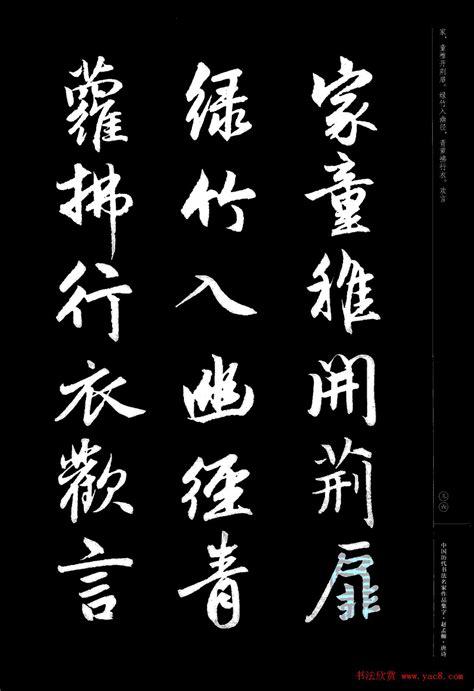 家童稚開荊扉
綠竹入幽徑青
蘿拂行衣歡言
家，童稚开荆扉。绿竹入幽径，青萝拂行衣。欢言
中国历代书法名家作品集字·赵孟頫·唐诗
书法欣赏 www.yac8.com